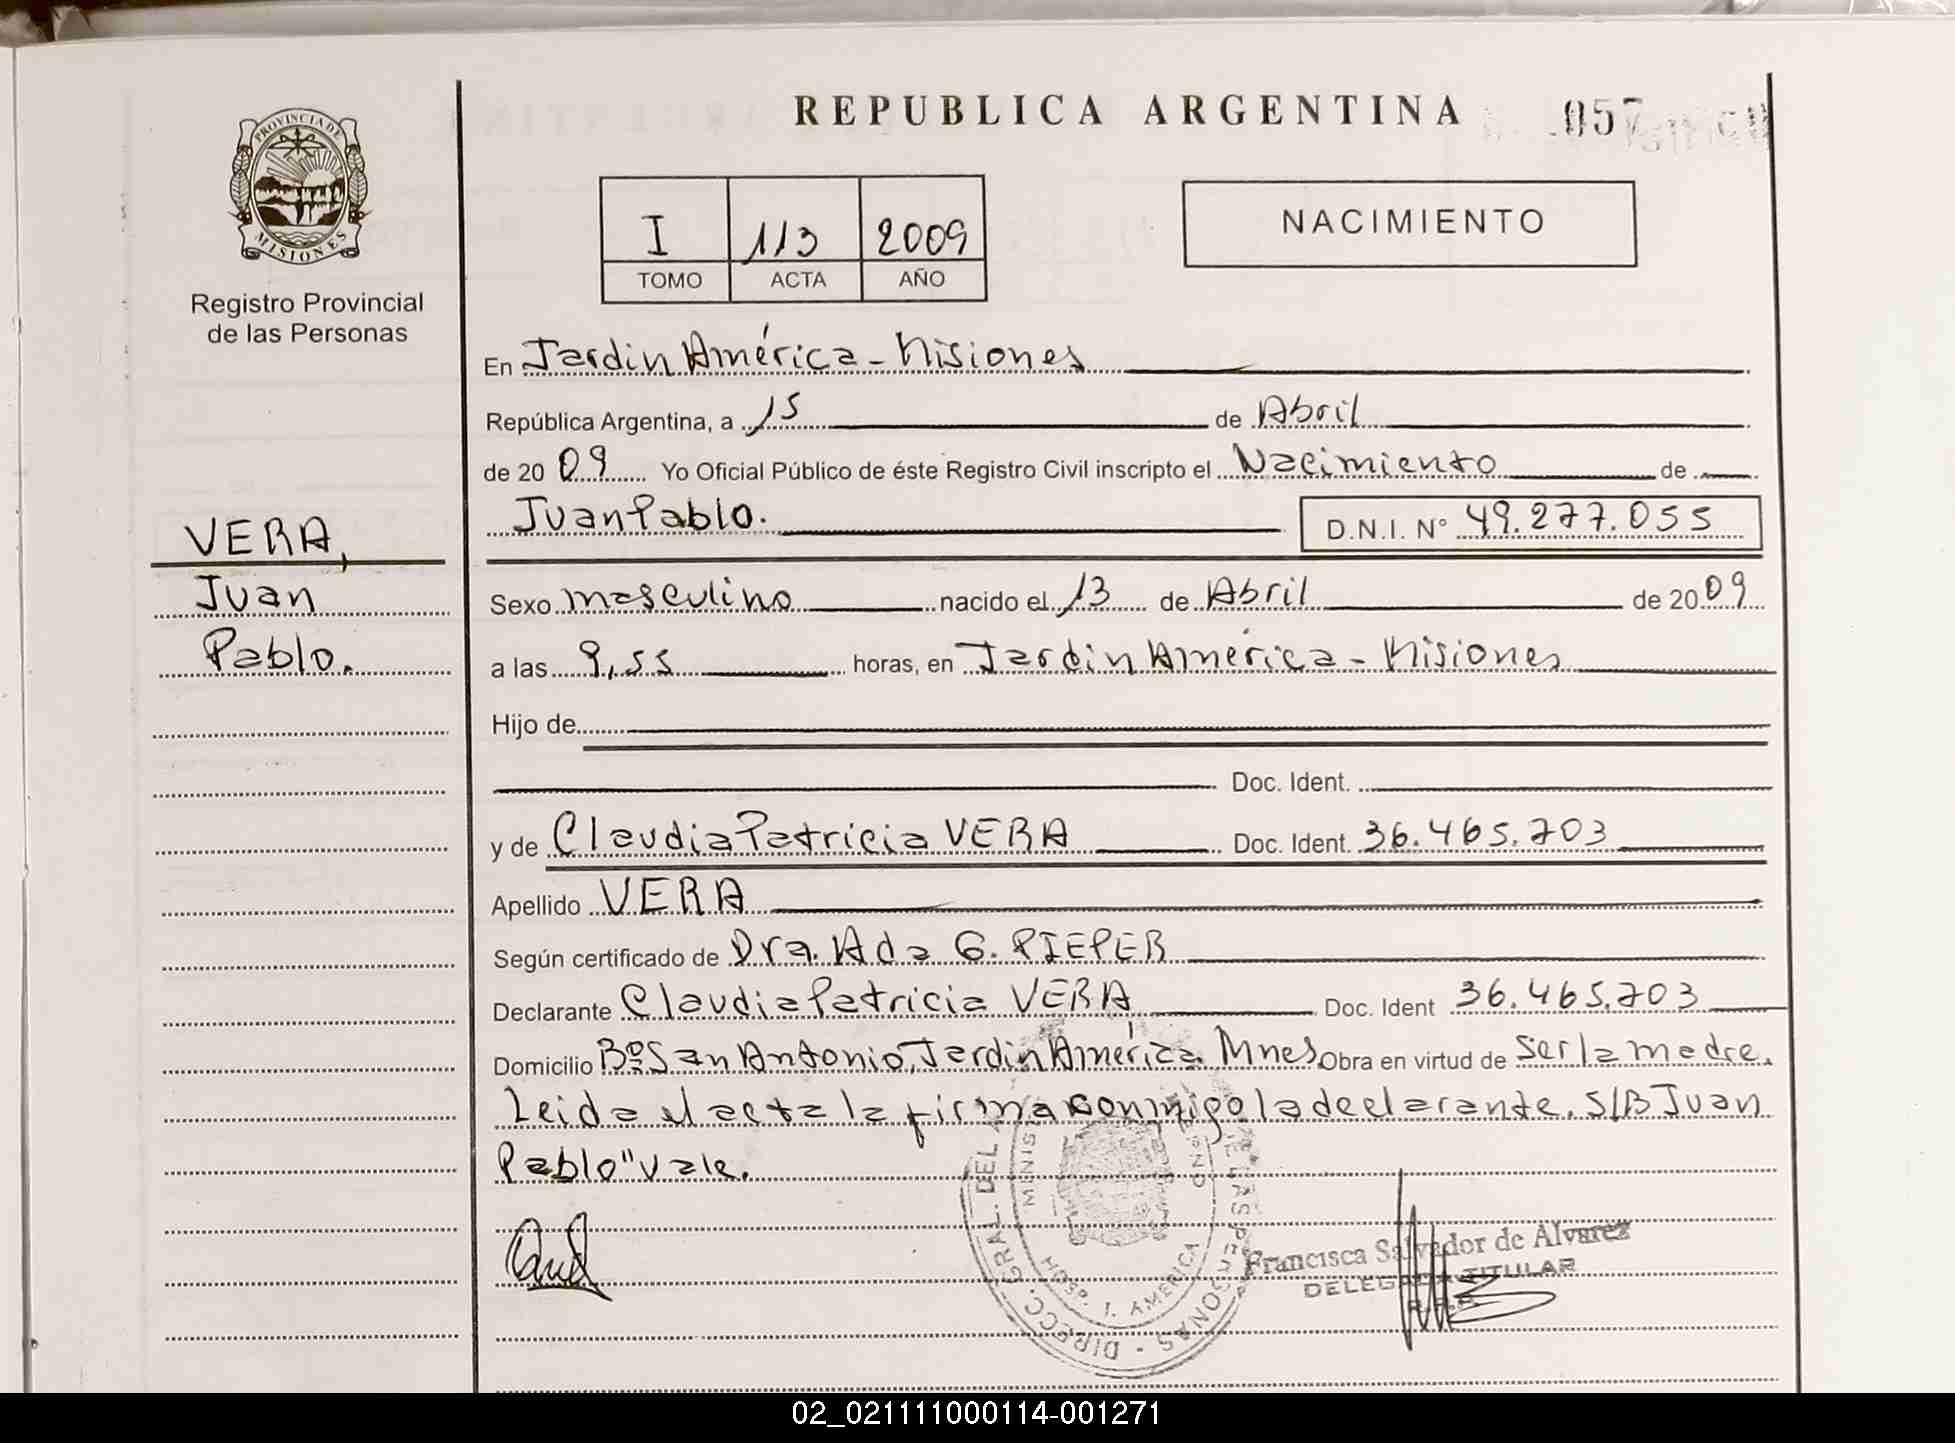 REPUBLICA ARGENTINA
057
PROVINCIA DE
MISIONES
Registro Provincial
de las Personas
I 113 2009
TOMO ACTA AÑO
NACIMIENTO
En Jardin América - Misiones
República Argentina, a 15 de Abril
de 20 09 Yo Oficial Público de éste Registro Civil inscripto el Nacimiento de
Juan Pablo.
D.N.I. N° 49.277.055
VERA,
Juan
Pablo.
Sexo masculino nacido el 13 de Abril de 20 09
a las 9,55 horas, en Jardin América - Misiones
Hijo de
Doc. Ident.
y de Claudia Patricia VERA Doc. Ident. 36.465.703
Apellido VERA
Según certificado de Dra. Ada G. PIEPER
Declarante Claudia Patricia VERA Doc. Ident 36.465.703
Domicilio Bº San Antonio, Jardin América. Mnes Obra en virtud de ser la madre.
Leida el acta la firma conmigo la declarante. S/B Juan
Pablo" Vale.
DIRECC. GRAL. DEL
HOSP. J. AMERICA
Francisca Salvador de Alvarez
DELEGADA TITULAR
02_021111000114-001271